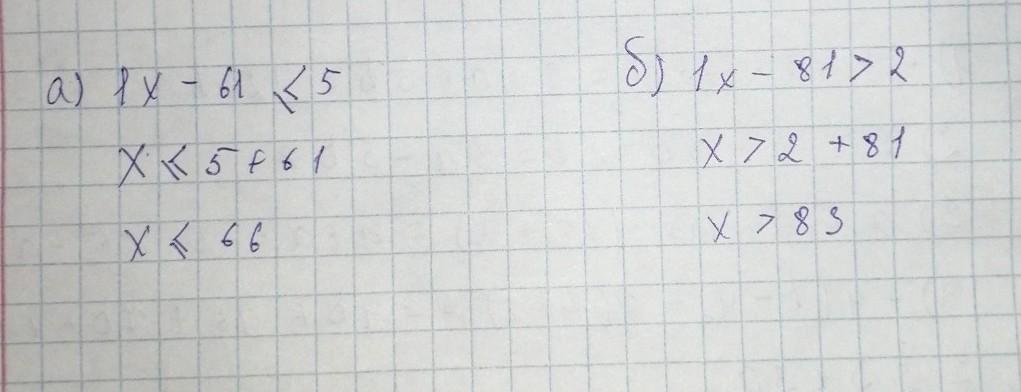 а) 1x - 61 ⩽ 5
x ⩽ 5 + 61
x ⩽ 66
б) 1x - 81 > 2
x > 2 + 81
x > 83